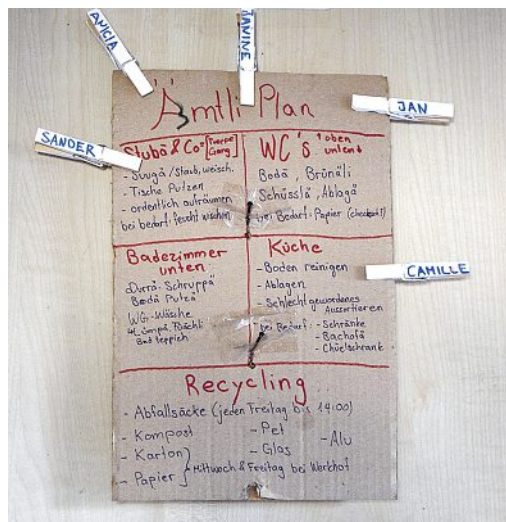 ANICIA
JANINE
Ämtli Plan
JAN
SANDER
Stubä & Co= [Treppe Gang]
- Suugä / Staub, wüsch.
- Tische Putzen
- ordentlich aufräumen
bei bedarf: feucht wischen
WC's ↑oben
unten↓
Bodä, Brünäli
Schüsslä, Ablagä
bei Bedarf: Papier (checked!)
Badezimmer
unten:
Durrä: Schruppä
Bodä Putzä
WG-Wäsche
Küche
- Boden reinigen
- Ablagen
- Schlecht gewordenes
Aussortieren
bei Bedarf: - Schränke
- Bachofä
- Chüelschrank
CAMILLE
Recycling
- Abfallsäcke (jeden Freitag bis 14:00)
- Kompost
- Karton
- Papier
} Mittwoch & Freitag bei Werkhof
- Pet
- Glas
- Alu